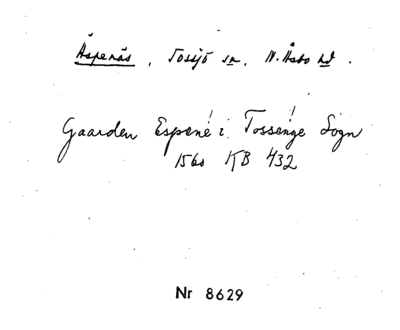 Äspenäs, Tossjö sn, N. Åsbo hd.
Gaarden Espene i Tossenge Sogn
1560 KB 432
Nr 8629